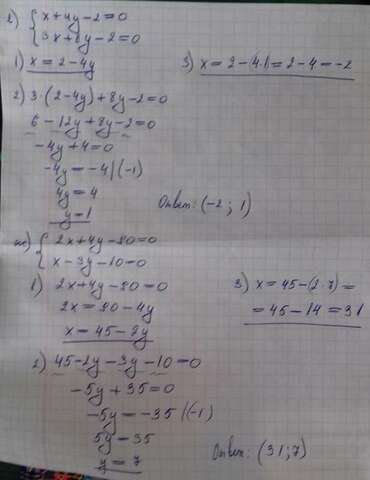 г) { x+4y-2=0
3x+8y-2=0
1) x=2-4y
3) x=2-(4·1)=2-4=-2
2) 3·(2-4y)+8y-2=0
6-12y+8y-2=0
-4y+4=0
-4y=-4|(-1)
4y=4
y=1
Ответ: (-2; 1)
ж) { 2x+4y-90=0
x-3y-10=0
1) 2x+4y-90=0
2x=90-4y
x=45-2y
3) x=45-(2·7)=
=45-14=31
2) 45-2y-3y-10=0
-5y+35=0
-5y=-35|(-1)
5y=35
y=7
Ответ: (31;7)